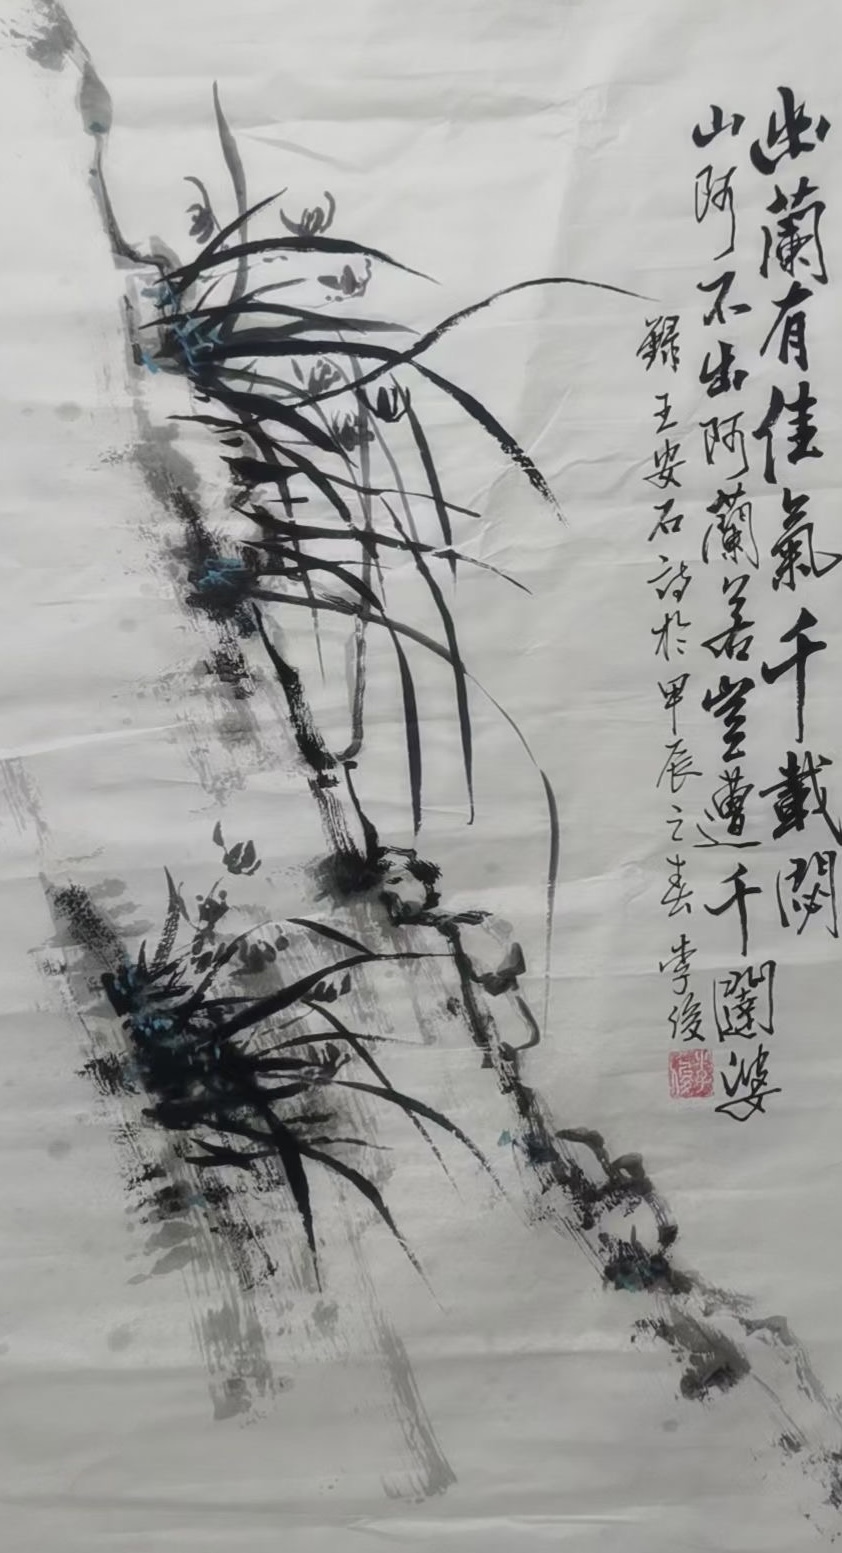 幽蘭有佳氣千載閟
山阿不出阿蘭若豈遭千闥婆
錄王安石詩於甲辰之春李俊
李俊